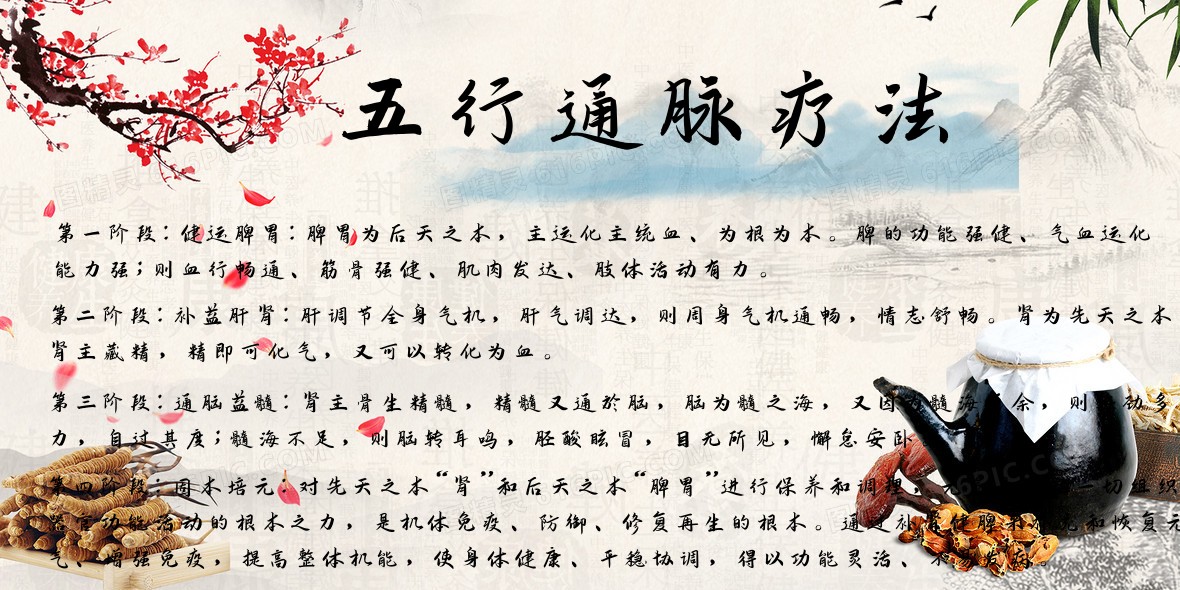 五行通脉疗法
第一阶段：健运脾胃：脾胃为后天之本，主运化主统血、为根为本。脾的功能强健、气血运化
能力强；则血行畅通、筋骨强健、肌肉发达、肢体活动有力。
第二阶段：补益肝肾：肝调节全身气机，肝气调达，则周身气机通畅，情志舒畅。肾为先天之本
肾主藏精，精即可化气，又可以转化为血。
第三阶段：通脑益髓：肾主骨生精髓，精髓又通於脑，脑为髓之海，又因为髓海 余，则 劲多
力，自过其度；髓海不足，则脑转耳鸣，胫酸眩冒，目无所见，懈怠安卧
第四阶段：固本培元：对先天之本“肾”和后天之本“脾胃”进行保养和调理， 一切组织
器官功能活动的根本之力，是机体免疫、防御、修复再生的根本。通过补肾健脾 和恢复元
气、增强免疫，提高整体机能，使身体健康、平稳协调，得以功能灵活、不易发病。